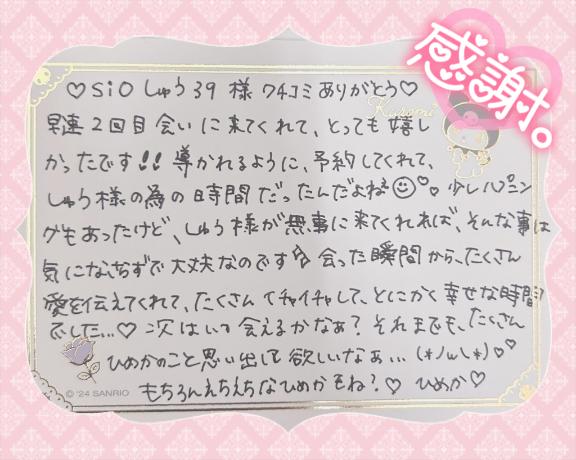 感謝。
♡SiO しゅう39 様 クチコミ ありがとう♡
Kuromi
早速2回目会いに来てくれて、とっても嬉し
かったです!! 導かれるように、予約してくれて、
しゅう様の為の時間だったんだよね 少しハプニン
グもあったけど、しゅう様が無事に来てくれれば、そんな事は
気になさらずで大丈夫なのです 会った瞬間から、たくさん
愛を伝えてくれて、たくさんイチャイチャして、とにかく幸せな時間
でした...♡ 次はいつ会えるかなぁ? それまでも、たくさん
ひめかのこと思い出して欲しいなぁ...(*ノωヽ*)♡♡
もちろんえちえちなひめかもね?♡ ひめか♡
© '24 SANRIO